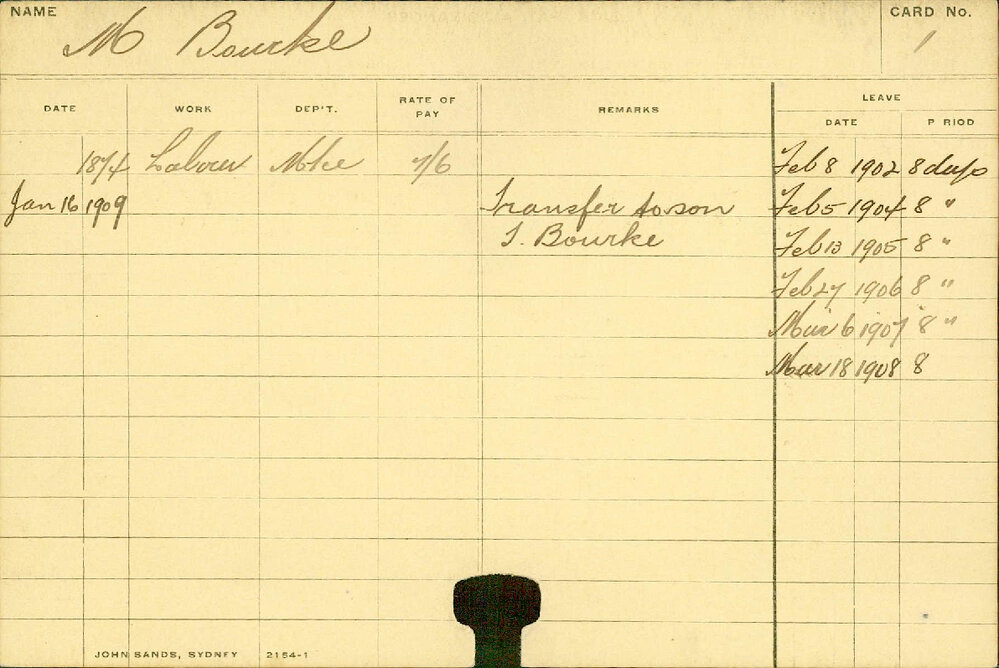 NAME M Bourke CARD No. 1
DATE WORK DEP'T. RATE OF PAY REMARKS LEAVE
DATE P RIOD
1874 Labour Mkt 7/6 Feb 8 1902 8 days
Jan 16 1909 Transfer to son Feb 5 1904 8 "
T. Bourke Feb 13 1905 8 "
Feb 27 1906 8 "
Mar 6 1907 8 "
Mar 18 1908 8
JOHN SANDS, SYDNEY 2154-1